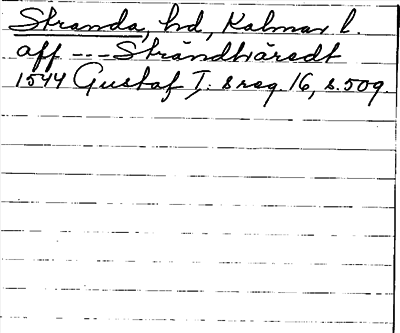 Stranda, hd, Kalmar l.
aff --- Strandhäredt
1544 Gustaf I:s reg. 16, s. 509.